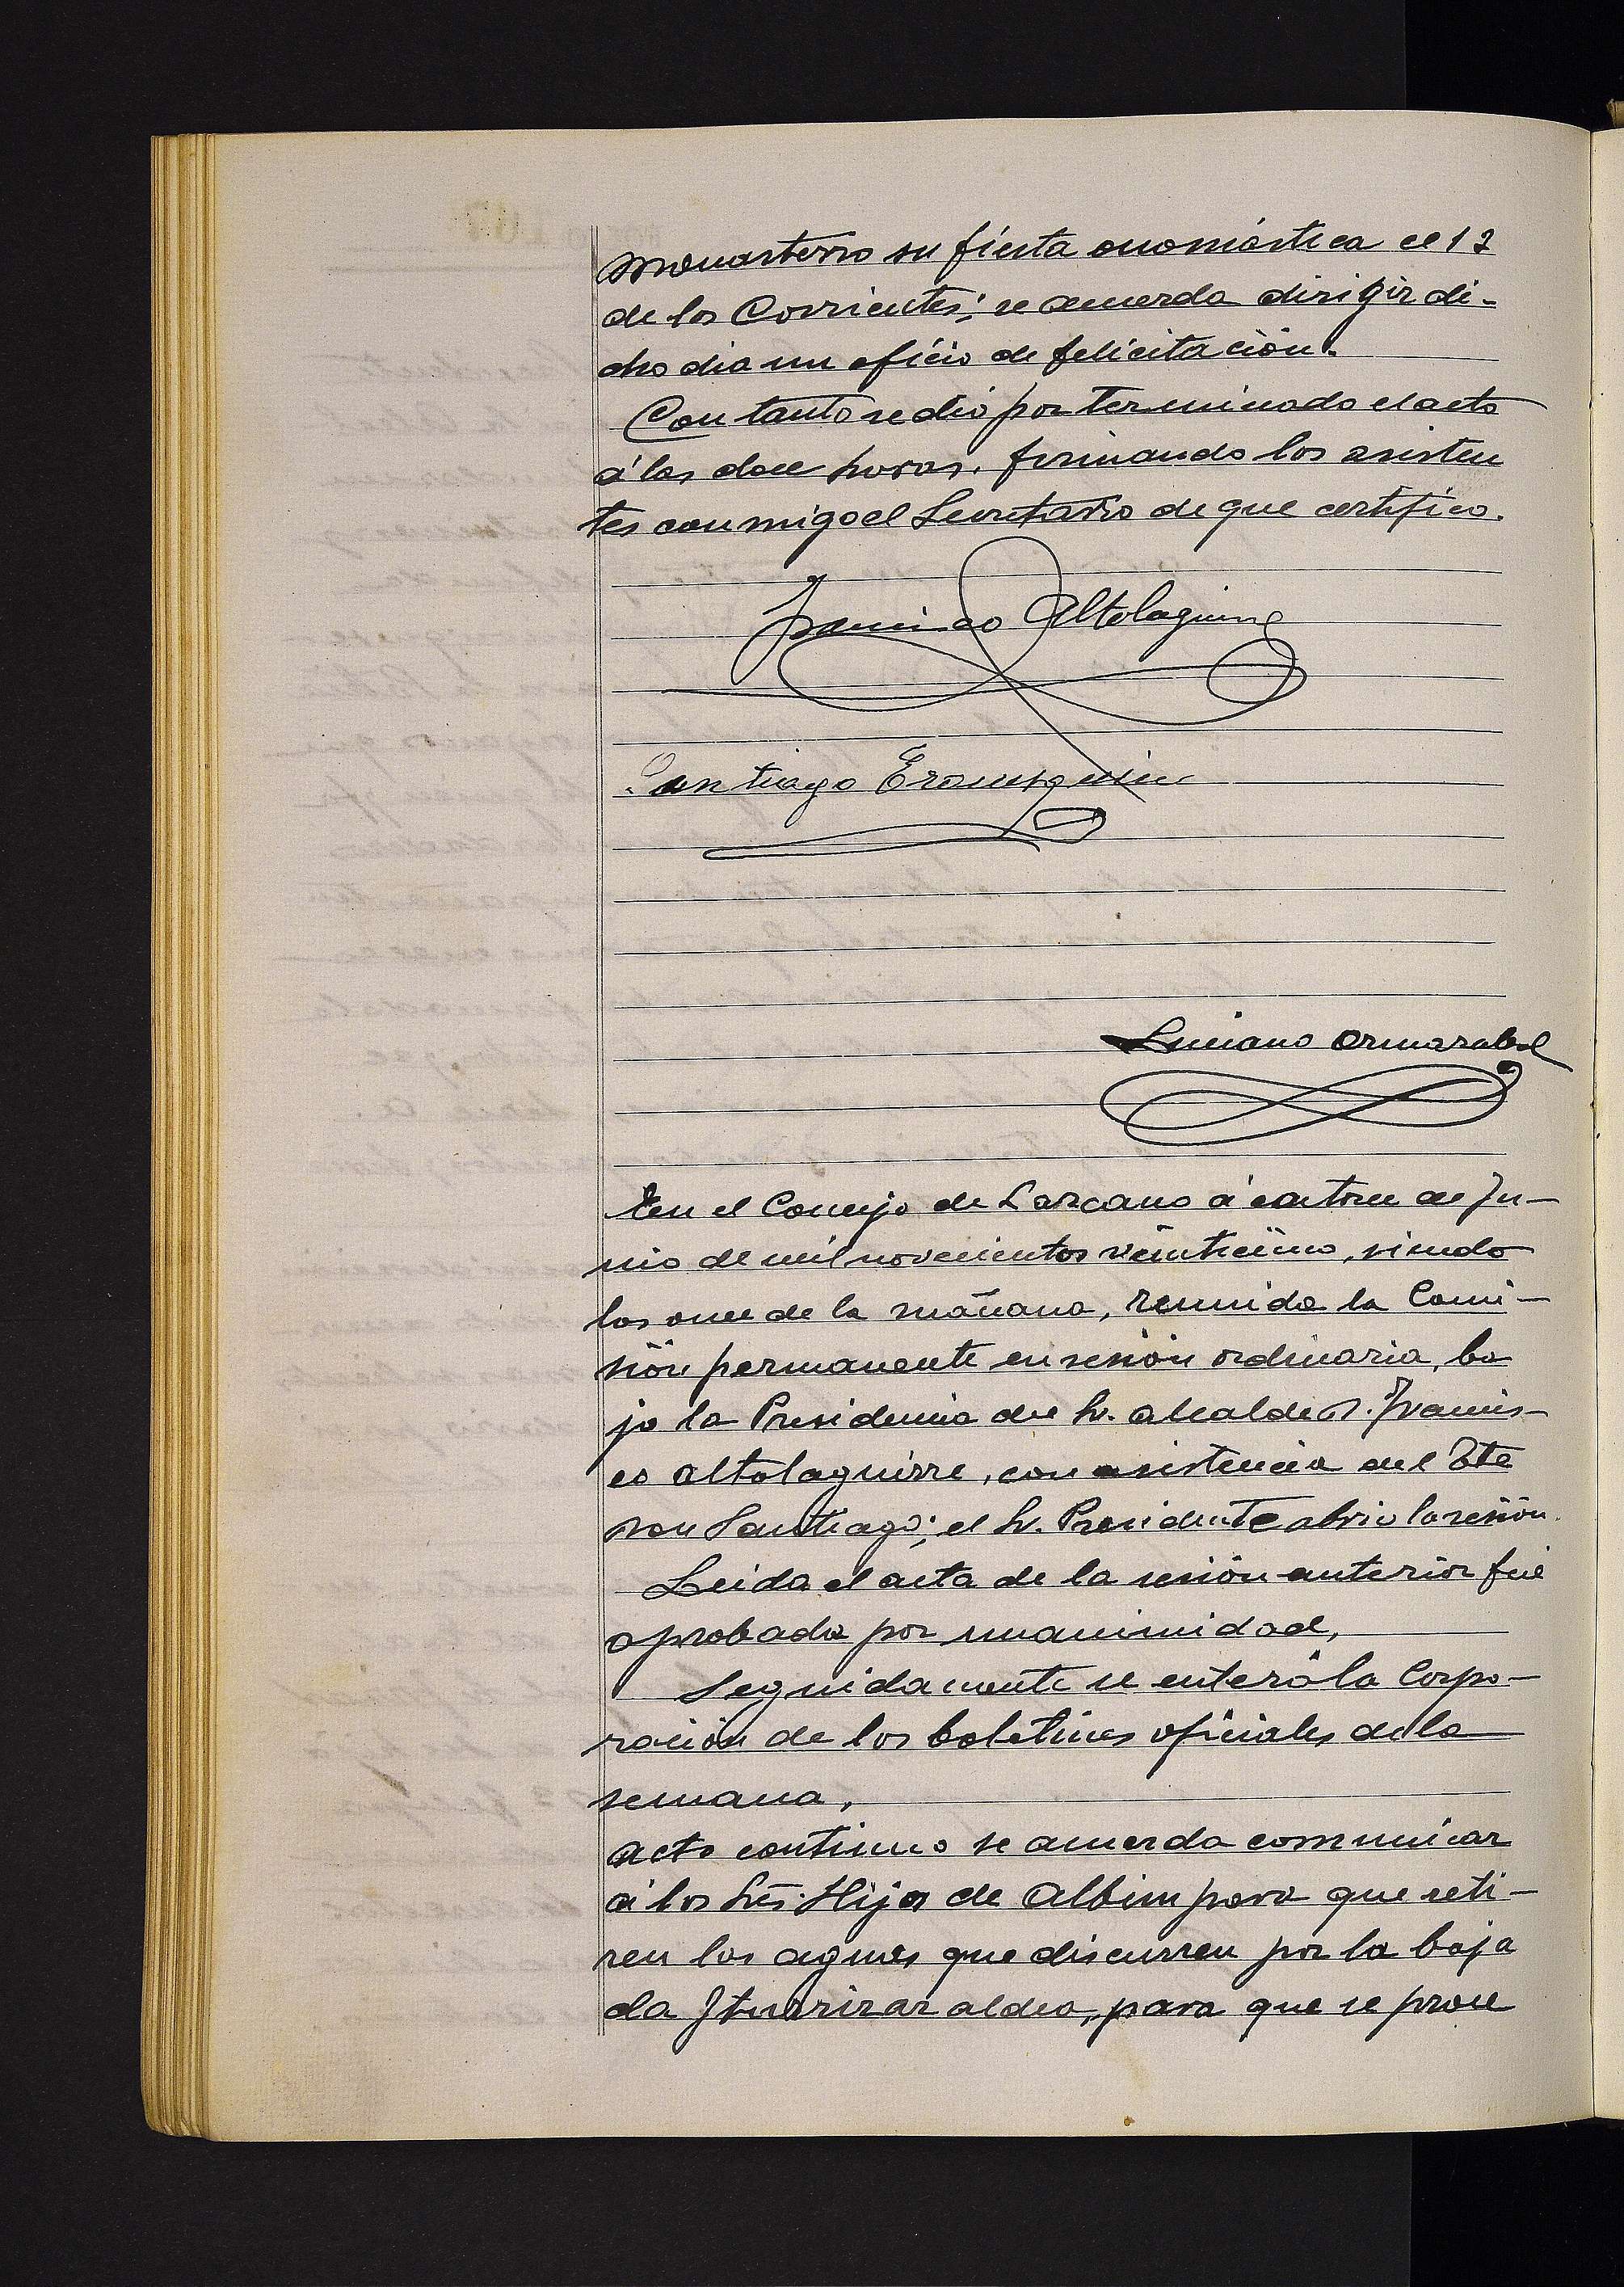 Monasterio su fiesta onomástica el 12
de los Corrientes; se acuerda dirigir di-
cho dia un oficio de felicitación.
Con tanto se dió por terminado el acto
á las doce horas. firmando los asisten
tes conmigo el Secretario de que certifico.
Francisco Altolaguirre
Santiago
Luciano Ormazabal
En el Concejo de Lazcano á catorce de Ju-
nio de mil novecientos veinticinco, siendo
las once de la mañana, reunida la Comi-
sión permanente en sesión ordinaria, ba
jo la Presidencia del Sr. Alcalde D. Francis-
co Altolaguirre, con asistencia del Tte
Don Santiago; el Sr. Presidente abrio la sesión.
Leida el acta de la sesión anterior fué
aprobada por unanimidad,
Seguidamente se enteró la Corpo-
ración de los boletines oficiales de la
semana,
Acto continuo se acuerda comunicar
á los Srs. Hijos de Albim para que reti-
ren las aguas que discurren por la baja
da Iturrizar aldea, para que se proce